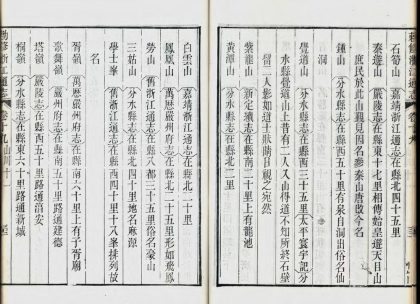 石筍山 嘉靖浙江通志在縣北四十里
秦遊山 嚴陵志在縣東十七里相傳始皇遊天目山
庶民於此山觀見因名參秦山唐改今名
鍾山 分水縣志在縣西五十里有泉自洞出俗名仙
洞
覺道山 分水縣志在縣西五十三里太平寰宇記分
水縣覺道山上昔有二人入山得道不知所終石壁
留二人影如道士狀曲目視之宛然
紫龍山 新定續志在縣南二十里上有龍池
黃潭山 分水縣志在縣北二里
白雲山 嘉靖浙江通志在縣北二十里
鳳凰山 萬歷嚴州府志在縣北二十五里形如鸞鳳
勞山 舊浙江通志在縣八都三十五里俗名蒙山
三姑山 分水縣志在縣北四十里地名麻源
學士峯 舊浙江通志在縣西四十里十八峯排列故
名
胥嶺 萬歷嚴州府志在縣南六十里上有子胥廟
歌舞嶺 嚴州府志在縣南五十里路通建德
塔嶺 嚴陵志在縣西五十里路通淳安
桐嶺 分水縣志在縣東六十里路通新城
敕修浙江通志 卷十九 山川十一